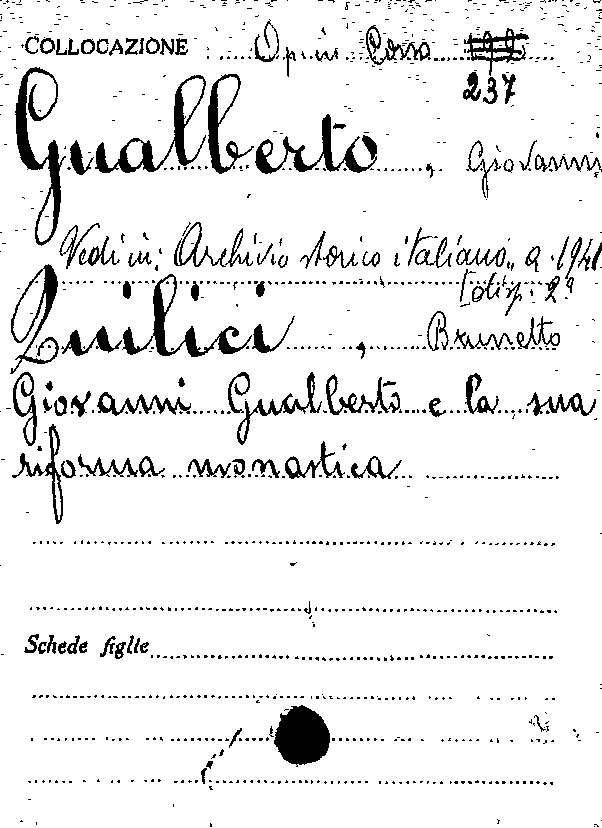 COLLOCAZIONE : Op. in Corso
237
Gualberto, Giovanni
Vedi in: Archivio storico italiano,, a. 1941
disp. 2ª
Quilici, Brunetto
Giovanni Gualberto e la sua
riforma monastica
Schede figlie